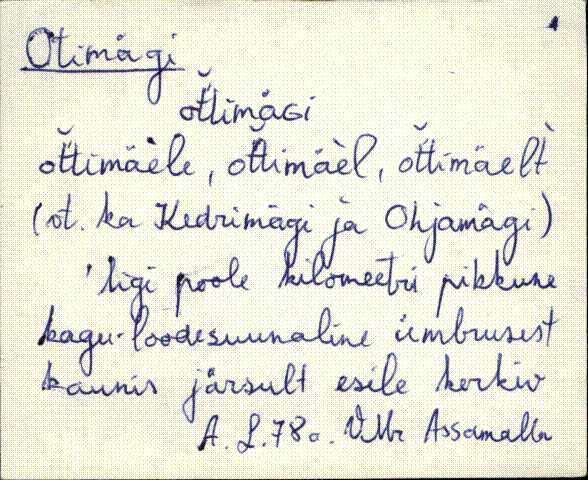 1
Otimägi
ot̆t̆imäGi
ot̆t̆imäèle, ot̆t̆imäèl, ot̆t̆imäelt̀
(vt. ka Kedrimägi ja Ohjamägi)
'ligi poole kilomeetri pikkune
kagu-loodesuunaline ümbrusest
kaunis järsult esile kerkiv
A. L. 78 a. VMr Assamalla